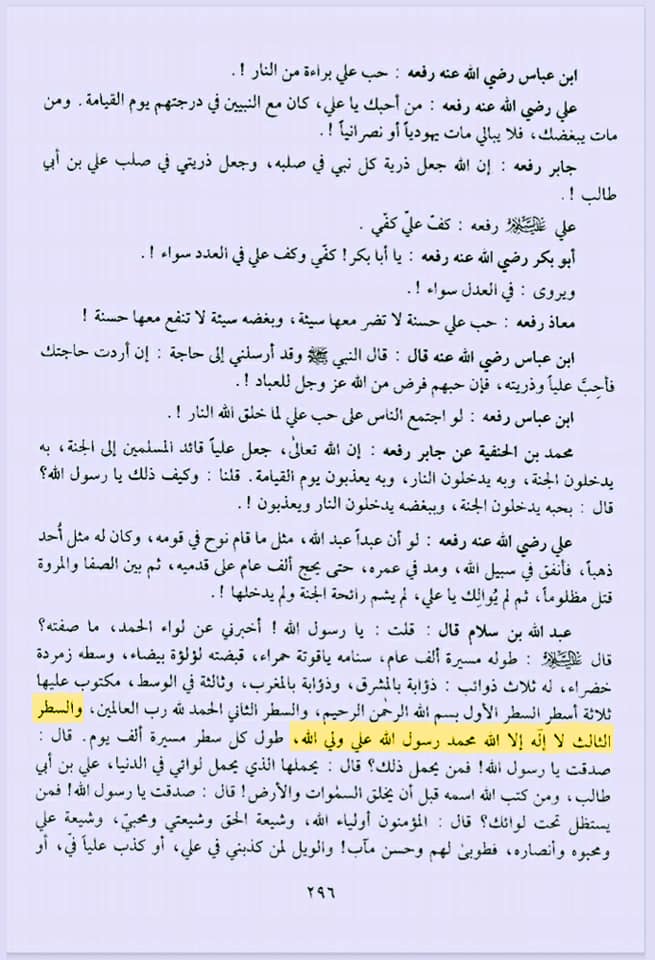 ابن عباس رضي الله عنه رفعه : حب علي براءة من النار !.
علي رضي الله عنه رفعه : من أحبك يا علي، كان مع النبيين في درجتهم يوم القيامة. ومن
مات يبغضك، فلا يبالي مات يهودياً أو نصرانياً !.
جابر رفعه : إن الله جعل ذرية كل نبي في صلبه، وجعل ذريتي في صلب علي بن أبي
طالب !.
علي عليه السلام رفعه : كفّ عليّ كفّي .
أبو بكر رضي الله عنه رفعه : يا أبا بكر! كفّي وكف علي في العدد سواء !.
ويروى : في العدل سواء !.
معاذ رفعه : حب علي حسنة لا تضر معها سيئة، وبغضه سيئة لا تنفع معها حسنة !
ابن عباس رضي الله عنه قال : قال النبي ﷺ وقد أرسلني إلى حاجة : إن أردت حاجتك
فأحِبَّ علياً وذريته، فإن حبهم فرض من الله عز وجل للعباد !.
ابن عباس رفعه : لو اجتمع الناس على حب علي لما خلق الله النار !.
محمد بن الحنفية عن جابر رفعه : إن الله تعالى، جعل علياً قائد المسلمين إلى الجنة، به
يدخلون الجنة، وبه يدخلون النار، وبه يعذبون يوم القيامة. قلنا : وكيف ذلك يا رسول الله؟
قال : بحبه يدخلون الجنة، وببغضه يدخلون النار ويعذبون !.
علي رضي الله عنه رفعه : لو أن عبداً عبد الله، مثل ما قام نوح في قومه، وكان له مثل أُحد
ذهباً، فأنفق في سبيل الله، ومد في عمره، حتى يحج ألف عام على قدميه، ثم بين الصفا والمروة
قتل مظلوماً، ثم لم يُوالِك يا علي، لم يشم رائحة الجنة ولم يدخلها !.
عبد الله بن سلام قال : قلت : يا رسول الله ! أخبرني عن لواء الحمد، ما صفته؟
قال عليه السلام : طوله مسيرة ألف عام، سنامه ياقوتة حمراء، قبضته لؤلؤة بيضاء، وسطه زمردة
خضراء، له ثلاث ذوائب : ذؤابة بالمشرق، وذؤابة بالمغرب، وثالثة في الوسط، مكتوب عليها
ثلاثة أسطر السطر الأول بسم الله الرحمٰن الرحيم، والسطر الثاني الحمد لله رب العالمين، والسطر
الثالث لا إلٰه إلا الله محمد رسول الله علي ولي الله، طول كل سطر مسيرة ألف يوم. قال :
صدقت يا رسول الله! فمن يحمل ذلك؟ قال : يحملها الذي يحمل لوائي في الدنيا، علي بن أبي
طالب، ومن كتب الله اسمه قبل أن يخلق السمٰوات والأرض! قال : صدقت يا رسول الله! فمن
يستظل تحت لوائك؟ قال : المؤمنون أولياء الله، وشيعة الحق وشيعتي ومحبيّ، وشيعة علي
ومحبوه وأنصاره، فطوبىٰ لهم وحسن مآب! والويل لمن كذبني في علي، أو كذب علياً فيّ، أو
٢٩٦